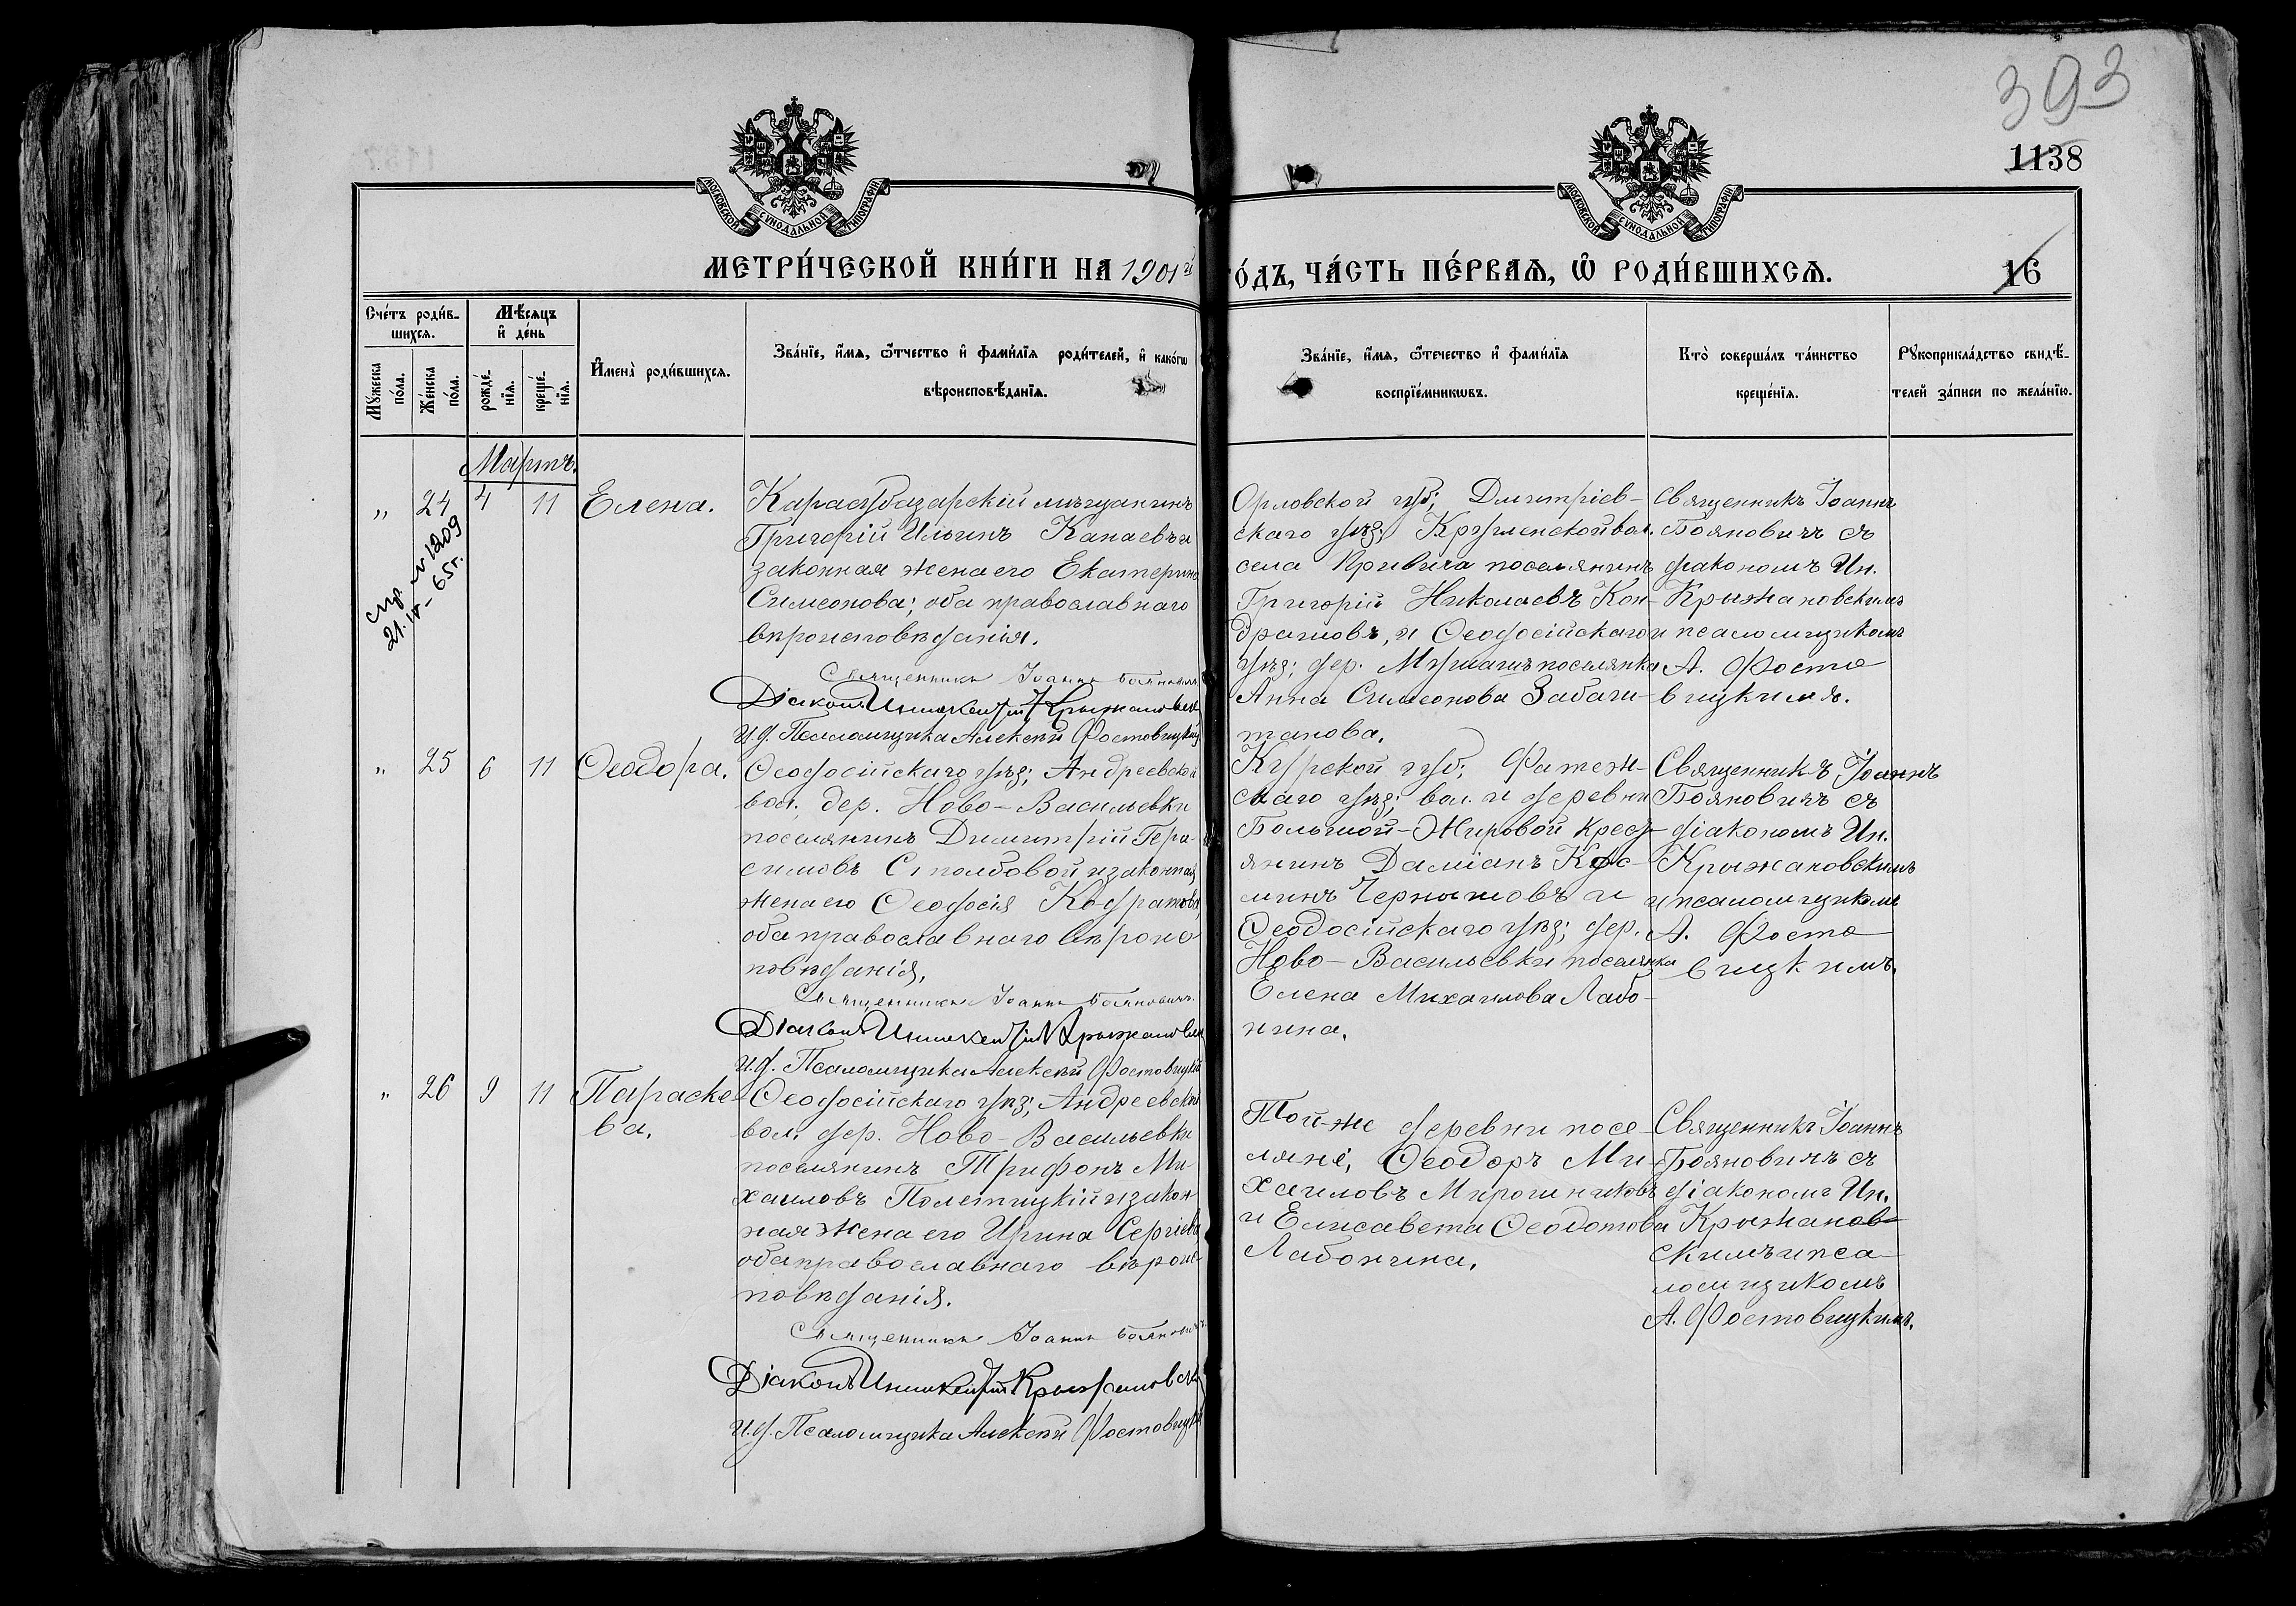 393
1138
МОСКОВСКОЙ СѴНОДАЛЬНОЙ ТИПОГРАФІИ
МОСКОВСКОЙ СѴНОДАЛЬНОЙ ТИПОГРАФІИ
МЕТРИ́ЧЕСКОЙ КНИ́ГИ НА 1901й
О́ДЪ, ЧА́СТЬ ПЕ́РВАѦ, Ѡ҆ РОДИ́ВШИХСѦ.
16
Сче́тъ роди́в-
шихсѧ.
Мꙋ́жеска
по́ла.
Же́нска
по́ла.
Мѣ́сѧцъ
и҆ де́нь
рожде́-
нїѧ.
креще́-
нїѧ.
И҆мена̀ роди́вшихсѧ.
Зва́нїе, и҆́мѧ, ѻ҆́тчество и҆ фами́лїѧ роди́телей, и҆ како́гѡ
вѣроисповѣ́данїѧ.
Зва́нїе, и҆́мѧ, ѻ҆́течество и҆ фами́лїѧ
воспрїе́мникѡвъ.
Кто̀ соверша́лъ та́инство
креще́нїѧ.
Рꙋкоприкла́дство свидѣ́-
телей за́писи по жела́нїю.
Мартъ.
„ 24 4 11 Елена.
спр. № 1209
21.IV – 65г.
Карасубазарскій мѣщанинъ
Григорій Ильинъ Канаевъ и
законная жена его Екатерина
Симеонова; оба православнаго
вѣроисповѣданія.
Священникъ Іоаннъ Бояновичъ
Діаконъ Иннокентій Крыжановск
И.д. Псаломщика Алексѣй Фостовицкій
Орловской губ; Дмитріев-
скаго уѣз; вол.
села поселянинъ
Григорій Николаевъ Кон-
дратовъ, и Ѳеодосійскаго
уѣз; дер. поселянка
Анна Симеонова
танова.
Священникъ Іоаннъ
Бояновичъ съ
діакономъ Ин.
Крыжановскимъ
и псаломщикомъ
А. Фосто
вицкимъ.
„ 25 6 11 Ѳеодора.
Ѳеодосійскаго уѣз; Андреевской
вол; дер. Ново-Васильевки
поселянинъ Димитрій Гера-
симовъ Столбовой и законная
жена его Ѳеодосія Кодратова
оба православнаго вѣроис
повѣданія.
Священникъ Іоаннъ Бояновичъ.
Діаконъ Иннокентій Крыжановск
И.д. Псаломщика Алексѣй Фостовицкій
Курской губ; Фатеж-
скаго уѣз; вол. и деревни
Большой-Жировой крест-
янинъ Даміанъ Кос-
минъ Чернышовъ и
Ѳеодосійскаго уѣз; дер.
Ново-Васильевки поселянка
Елена Михаилова Лабо-
нина.
Священникъ Іоаннъ
Бояновичъ съ
діакономъ Ин.
Крыжановскимъ
и псаломщикомъ
А. Фосто
вицкимъ.
„ 26 9 11 Параске-
ва.
Ѳеодосійскаго уѣз; Андреевской
вол. дер. Ново-Васильевки
поселянинъ Трифонъ Ми-
хаиловъ Полетицкій и закон
ная жена его Ирина Сергіева
оба православнаго вѣроис-
повѣданія.
Священникъ Іоаннъ Бояновичъ
Діаконъ Иннокентій Крыжановск
И.д. Псаломщика Алексѣй Фостовицкій
Той-же деревни посе-
ляне, Ѳеодоръ Ми-
хаиловъ Мирошниковъ
и Елисавета Ѳеодотова
Лабонина.
Священникъ Іоаннъ
Бояновичъ съ
діакономъ Ин.
Крыжанов-
скимъ и пса-
ломщикомъ
А. Фостовицкимъ.